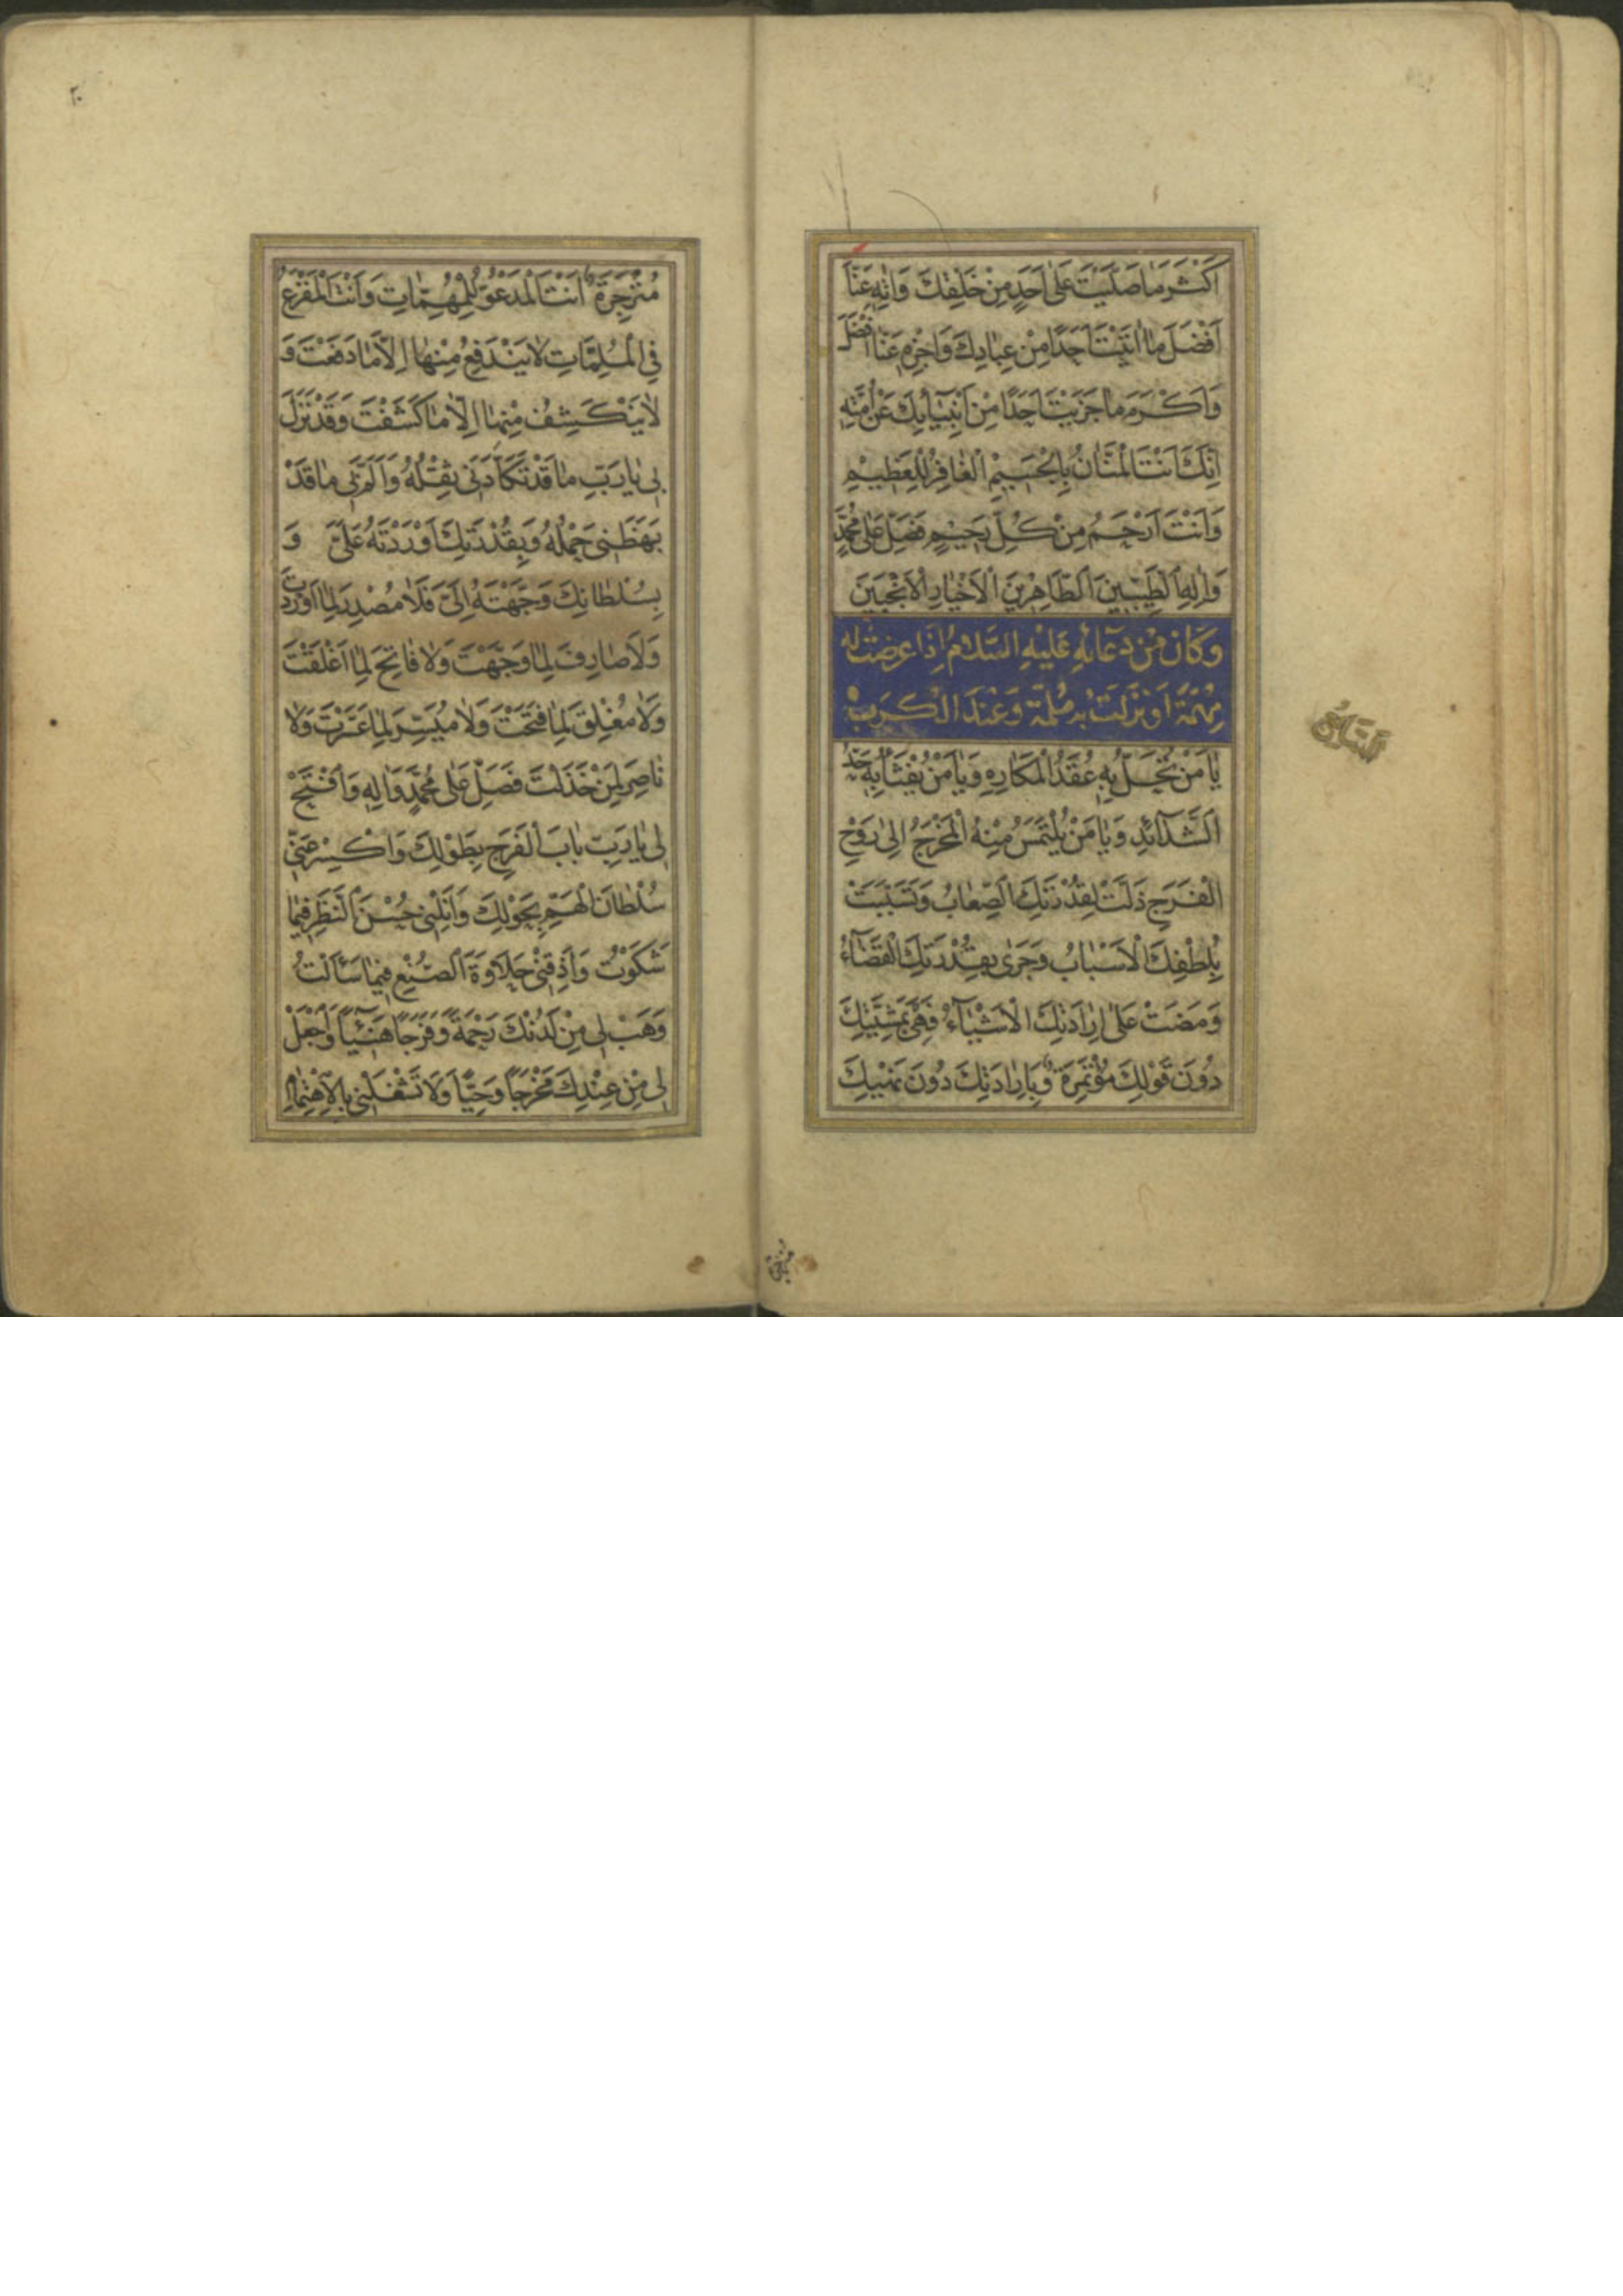 اَكْثَرَ مَا صَلَّيْتَ عَلٰى اَحَدٍ مِنْ خَلْقِكَ وَاٰتِهِ عَنَّا
اَفْضَلَ مَا اٰتَيْتَ اَحَدًا مِنْ عِبَادِكَ وَاجْزِهِ عَنَّا اَفْضَلَ
وَاَكْرَمَ مَا جَزَيْتَ اَحَدًا مِنْ اَنْبِيَآئِكَ عَنْ اُمَّتِهِ
اِنَّكَ اَنْتَ الْمَنَّانُ بِالْجَسِيْمِ الْغَافِرُ لِلْعَظِيْمِ
وَاَنْتَ اَرْحَمُ مِنْ كُلِّ رَحِيْمٍ فَصَلِّ عَلٰى مُحَمَّدٍ
وَاٰلِهِ الطَّيِّبِيْنَ الطَّاهِرِيْنَ الْاَخْيَارِ الْاَنْجَبِيْنَ
وَكَانَ مِنْ دُعَائِهِ عَلَيْهِ السَّلَامُ اِذَا عَرَضَتْ لَهُ
مُهِمَّةٌ اَوْ نَزَلَتْ بِهِ مُلِمَّةٌ وَعِنْدَ الْكَرْبِ
السَّابِعُ
يَا مَنْ تُحَلُّ بِهِ عُقَدُ الْمَكَارِهِ وَيَا مَنْ يُفْثَأُ بِهِ حَدُّ
الشَّدَآئِدِ وَيَا مَنْ يُلْتَمَسُ مِنْهُ الْمَخْرَجُ اِلٰى رَوْحِ
الْفَرَجِ ذَلَّتْ لِقُدْرَتِكَ الصِّعَابُ وَتَسَبَّبَتْ
بِلُطْفِكَ الْاَسْبَابُ وَجَرٰى بِقُدْرَتِكَ الْقَضَآءُ
وَمَضَتْ عَلٰى اِرَادَتِكَ الْاَشْيَآءُ فَهِيَ بِمَشِيَّتِكَ
دُونَ قَوْلِكَ مُؤْتَمِرَةٌ وَبِاِرَادَتِكَ دُونَ نَهْيِكَ
مُنْزَجِرَةٌ اَنْتَ الْمَدْعُوُّ لِلْمُهِمَّاتِ وَاَنْتَ الْمَفْزَعُ
فِي الْمُلِمَّاتِ لَا يَنْدَفِعُ مِنْهَا اِلَّا مَا دَفَعْتَ وَ
لَا يَنْكَشِفُ مِنْهَا اِلَّا مَا كَشَفْتَ وَقَدْ نَزَلَ
بِي يَا رَبِّ مَا قَدْ تَكَأَّدَنِي ثِقْلُهُ وَاَلَمَّ بِي مَا قَدْ
بَهَظَنِي حَمْلُهُ وَبِقُدْرَتِكَ اَوْرَدْتَهُ عَلَيَّ وَ
بِسُلْطَانِكَ وَجَّهْتَهُ اِلَيَّ فَلَا مُصْدِرَ لِمَا اَوْرَدْتَ
وَلَا صَارِفَ لِمَا وَجَّهْتَ وَلَا فَاتِحَ لِمَا اَغْلَقْتَ
وَلَا مُغْلِقَ لِمَا فَتَحْتَ وَلَا مُيَسِّرَ لِمَا عَسَّرْتَ وَلَا
نَاصِرَ لِمَنْ خَذَلْتَ فَصَلِّ عَلٰى مُحَمَّدٍ وَاٰلِهِ وَافْتَحْ
لِي يَا رَبِّ بَابَ الْفَرَجِ بِطَوْلِكَ وَاكْسِرْ عَنِّي
سُلْطَانَ الْهَمِّ بِحَوْلِكَ وَاَنِلْنِي حُسْنَ النَّظَرِ فِيمَا
شَكَوْتُ وَاَذِقْنِي حَلَاوَةَ الصُّنْعِ فِيمَا سَئَالْتُ
وَهَبْ لِي مِنْ لَدُنْكَ رَحْمَةً وَفَرَجًا هَنِيئًا وَاجْعَلْ
لِي مِنْ عِنْدِكَ مَخْرَجًا وَحِيًّا وَلَا تَشْغَلْنِي بِالْاِهْتِمَامِ